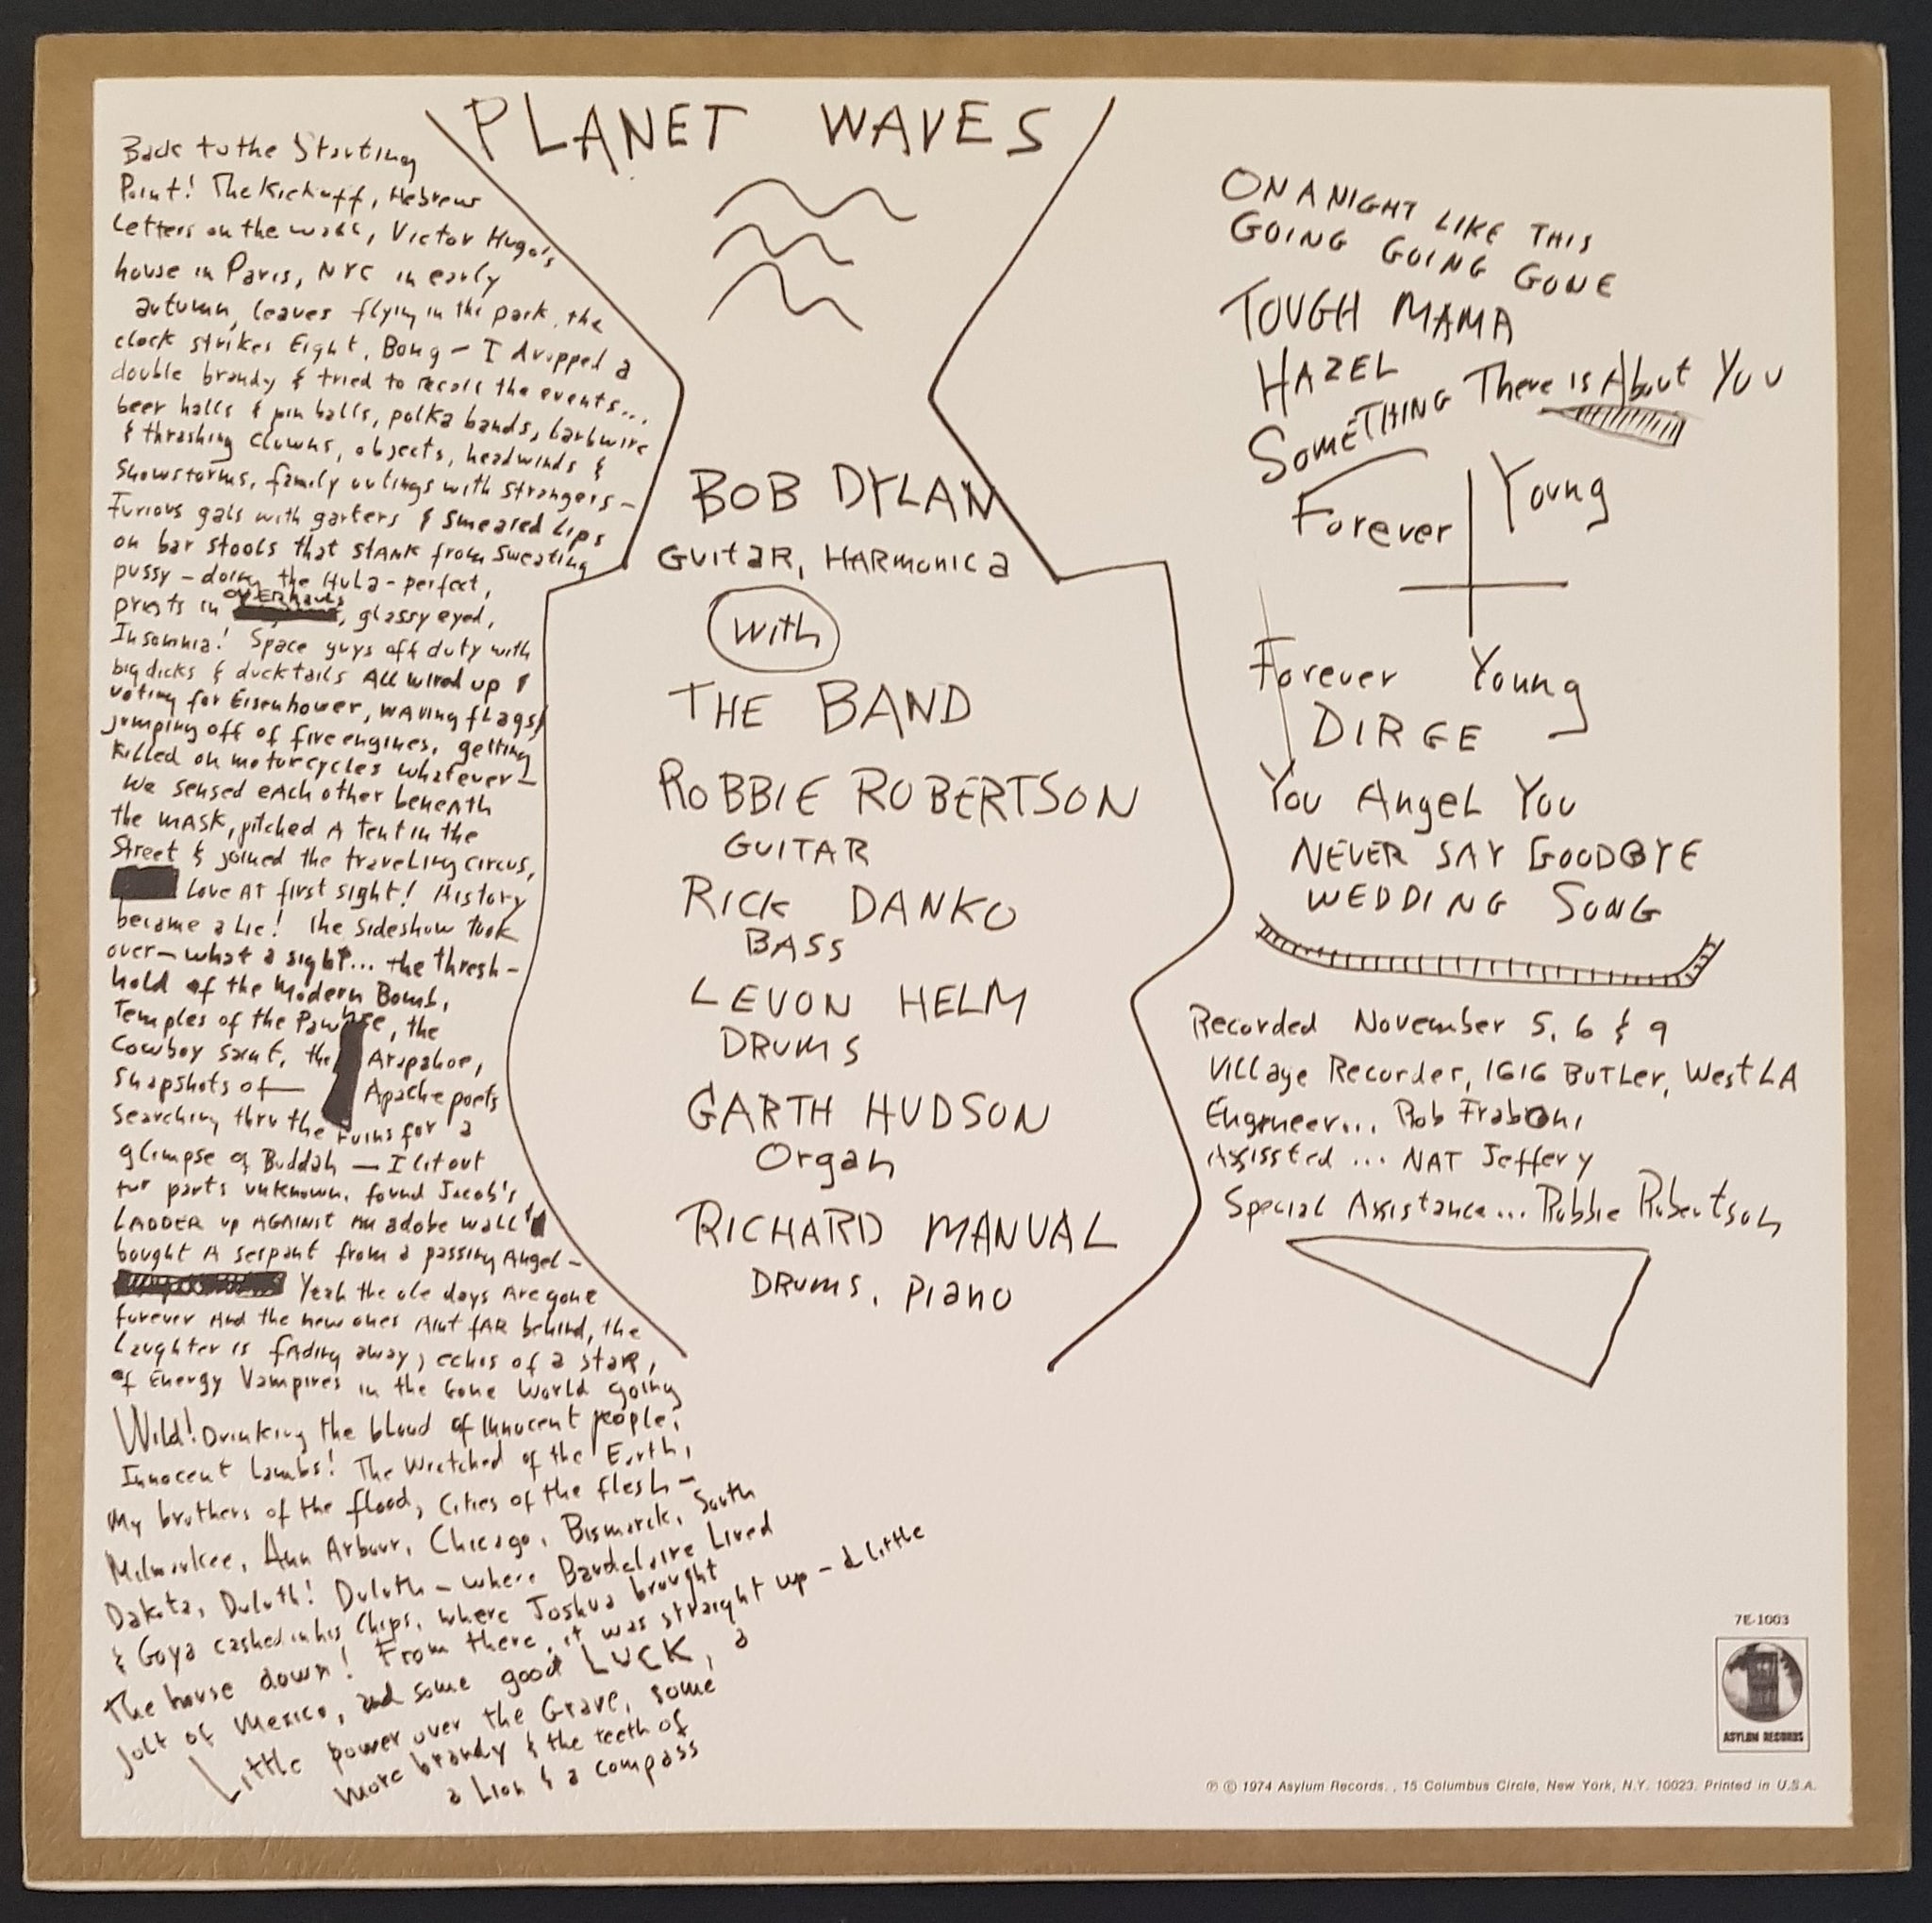 PLANET WAVES
Back to the Starting
Point! The Kickoff, Hebrew
Letters on the wall, Victor Hugo's
house in Paris, NYC in early
autumn, leaves flying in the park, the
clock strikes Eight, Bong — I dropped a
double brandy & tried to recall the events...
beer halls & pin balls, polka bands, barbwire
& thrashing clowns, objects, headwinds &
Snowstorms, family outings with strangers —
Furious gals with garters & smeared Lips
on bar stools that stank from sweating
pussy — doing the Hula - perfect,
priests in OVERhauls, glassy eyed,
Insomnia! Space guys off duty with
big dicks & ducktails All wired up &
voting for Eisenhower, waving flags,
jumping off of fire engines, getting
Killed on motorcycles whatever —
We sensed each other beneath
the MASK, pitched A tent in the
Street & joined the traveling circus,
Love At first sight! History
became a Lie! The sideshow took
over — what a sight... the thresh-
hold of the Modern Bomb,
Temples of the Pawnee, the
Cowboy saint, the Arapahoe,
Snapshots of — Apache poets
Searching thru the ruins for a
glimpse of Buddah — I lit out
for parts unknown, found Jacob's
LADDER up AGAINST an adobe wall &
bought A serpent from a passing Angel —
Yeah the ole days Are gone
forever And the new ones Aint fAR behind, the
Laughter is fAding away, echos of a staR,
of Energy Vampires in the Gone World going
Wild! Drinking the blood of Innocent people,
Innocent Lambs! The Wretched of the Earth,
My brothers of the flood, Cities of the flesh —
Milwaukee, Ann Arbour, Chicago, Bismarck, South
Dakota, Duluth! Duluth — where Baudelaire Lived
& Goya cashed in his Chips, where Joshua brought
the house down! From there, it was straight up — a little
jolt of Mexico, and some good LUCK, a
Little power over the Grave, some
more brandy & the teeth of
a Lion & a compass
BOB DYLAN
GUITAR, HARMONICA
With
THE BAND
ROBBIE ROBERTSON
GUITAR
RICK DANKO
BASS
LEVON HELM
DRUMS
GARTH HUDSON
Organ
RICHARD MANUAL
DRUMS, PIANO
ON A NIGHT LIKE THIS
GOING GOING GONE
TOUGH MAMA
HAZEL
SOMETHING There is About You
Forever Young
Forever Young
DIRGE
You Angel You
NEVER SAY GOODBYE
WEDDING SONG
Recorded November 5, 6 & 9
Village Recorder, 1616 BUTLer, West LA
Engineer... Rob Fraboni
Assissted ... NAT Jeffery
Special Assistance... Robbie Robertson
7E-1003
ASYLUM RECORDS
℗ © 1974 Asylum Records. , 15 Columbus Circle, New York, N.Y. 10023. Printed in U.S.A.